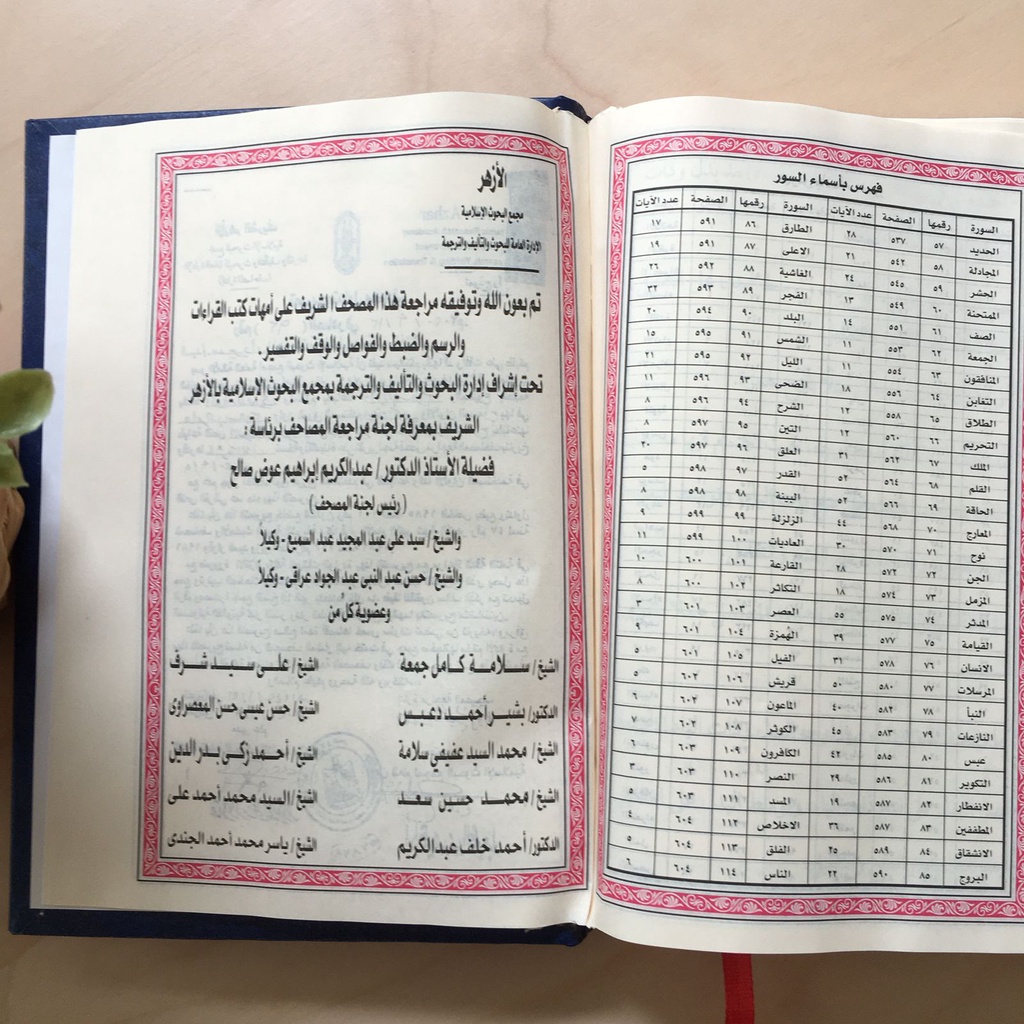 فهرس بأسماء السور
السورة رقمها الصفحة عدد الآيات السورة رقمها الصفحة عدد الآيات
الحديد ٥٧ ٥٣٧ ٢٨ الطارق ٨٦ ٥٩١ ١٧
المجادلة ٥٨ ٥٤٢ ٢١ الاعلى ٨٧ ٥٩١ ١٩
الحشر ٥٩ ٥٤٥ ٢٤ الغاشية ٨٨ ٥٩٢ ٢٦
الممتحنة ٦٠ ٥٤٩ ١٣ الفجر ٨٩ ٥٩٣ ٣٢
الصف ٦١ ٥٥١ ١٤ البلد ٩٠ ٥٩٤ ٢٠
الجمعة ٦٢ ٥٥٣ ١١ الشمس ٩١ ٥٩٥ ١٥
المنافقون ٦٣ ٥٥٤ ١١ الليل ٩٢ ٥٩٥ ٢١
التغابن ٦٤ ٥٥٦ ١٨ الضحى ٩٣ ٥٩٦ ١١
الطلاق ٦٥ ٥٥٨ ١٢ الشرح ٩٤ ٥٩٦ ٨
التحريم ٦٦ ٥٦٠ ١٢ التين ٩٥ ٥٩٧ ٨
الملك ٦٧ ٥٦٢ ٣١ العلق ٩٦ ٥٩٧ ٢٠
القلم ٦٨ ٥٦٤ ٥٢ القدر ٩٧ ٥٩٨ ٥
الحاقة ٦٩ ٥٦٦ ٥٢ البينة ٩٨ ٥٩٨ ٨
المعارج ٧٠ ٥٦٨ ٤٤ الزلزلة ٩٩ ٥٩٩ ٩
نوح ٧١ ٥٧٠ ٣٠ العاديات ١٠٠ ٥٩٩ ١١
الجن ٧٢ ٥٧٢ ٢٨ القارعة ١٠١ ٦٠٠ ١٠
المزمل ٧٣ ٥٧٤ ١٨ التكاثر ١٠٢ ٦٠٠ ٨
المدثر ٧٤ ٥٧٥ ٥٥ العصر ١٠٣ ٦٠١ ٣
القيامة ٧٥ ٥٧٧ ٣٩ الهُمزة ١٠٤ ٦٠١ ٩
الانسان ٧٦ ٥٧٨ ٣١ الفيل ١٠٥ ٦٠١ ٥
المرسلات ٧٧ ٥٨٠ ٥٠ قريش ١٠٦ ٦٠٢ ٥
النبأ ٧٨ ٥٨٢ ٤٠ الماعون ١٠٧ ٦٠٢ ٦
النازعات ٧٩ ٥٨٣ ٤٥ الكوثر ١٠٨ ٦٠٢ ٧
عبس ٨٠ ٥٨٥ ٤٢ الكافرون ١٠٩ ٦٠٣ ٦
التكوير ٨١ ٥٨٦ ٢٩ النصر ١١٠ ٦٠٣ ٣
الانفطار ٨٢ ٥٨٧ ١٩ المسد ١١١ ٦٠٣ ٥
المطففين ٨٣ ٥٨٧ ٣٦ الاخلاص ١١٢ ٦٠٤ ٤
الانشقاق ٨٤ ٥٨٩ ٢٥ الفلق ١١٣ ٦٠٤ ٥
البروج ٨٥ ٥٩٠ ٢٢ الناس ١١٤ ٦٠٤ ٦
الأزهر
مجمع البحوث الإسلامية
الإدارة العامة للبحوث والتأليف والترجمة
تم بعون الله وتوفيقه مراجعة هذا المصحف الشريف على أمهات كتب القراءات
والرسم والضبط والفواصل والوقف والتفسير .
تحت إشراف إدارة البحوث والتأليف والترجمة بمجمع البحوث الإسلامية بالأزهر
الشريف بمعرفة لجنة مراجعة المصاحف برئاسة :
فضيلة الأستاذ الدكتور / عبدالكريم إبراهيم عوض صالح
( رئيس لجنة المصحف )
والشيخ / سيد على عبد المجيد عبد السميع - وكيلاً
والشيخ / حسن عبد النبي عبد الجواد عراقى - وكيلاً
وعضوية كل من
الشيخ / سلامة كامل جمعة الشيخ / على سيد شرف
الدكتور / بشير أحمد دعبس الشيخ / حسن عيسى حسن المعصراوى
الشيخ / محمد السيد عفيفي سلامة الشيخ / أحمد زكى بدر الدين
الشيخ / محمد حسين سعد الشيخ / السيد محمد أحمد على
الدكتور / أحمد خلف عبدالكريم الشيخ / ياسر محمد أحمد الجندى